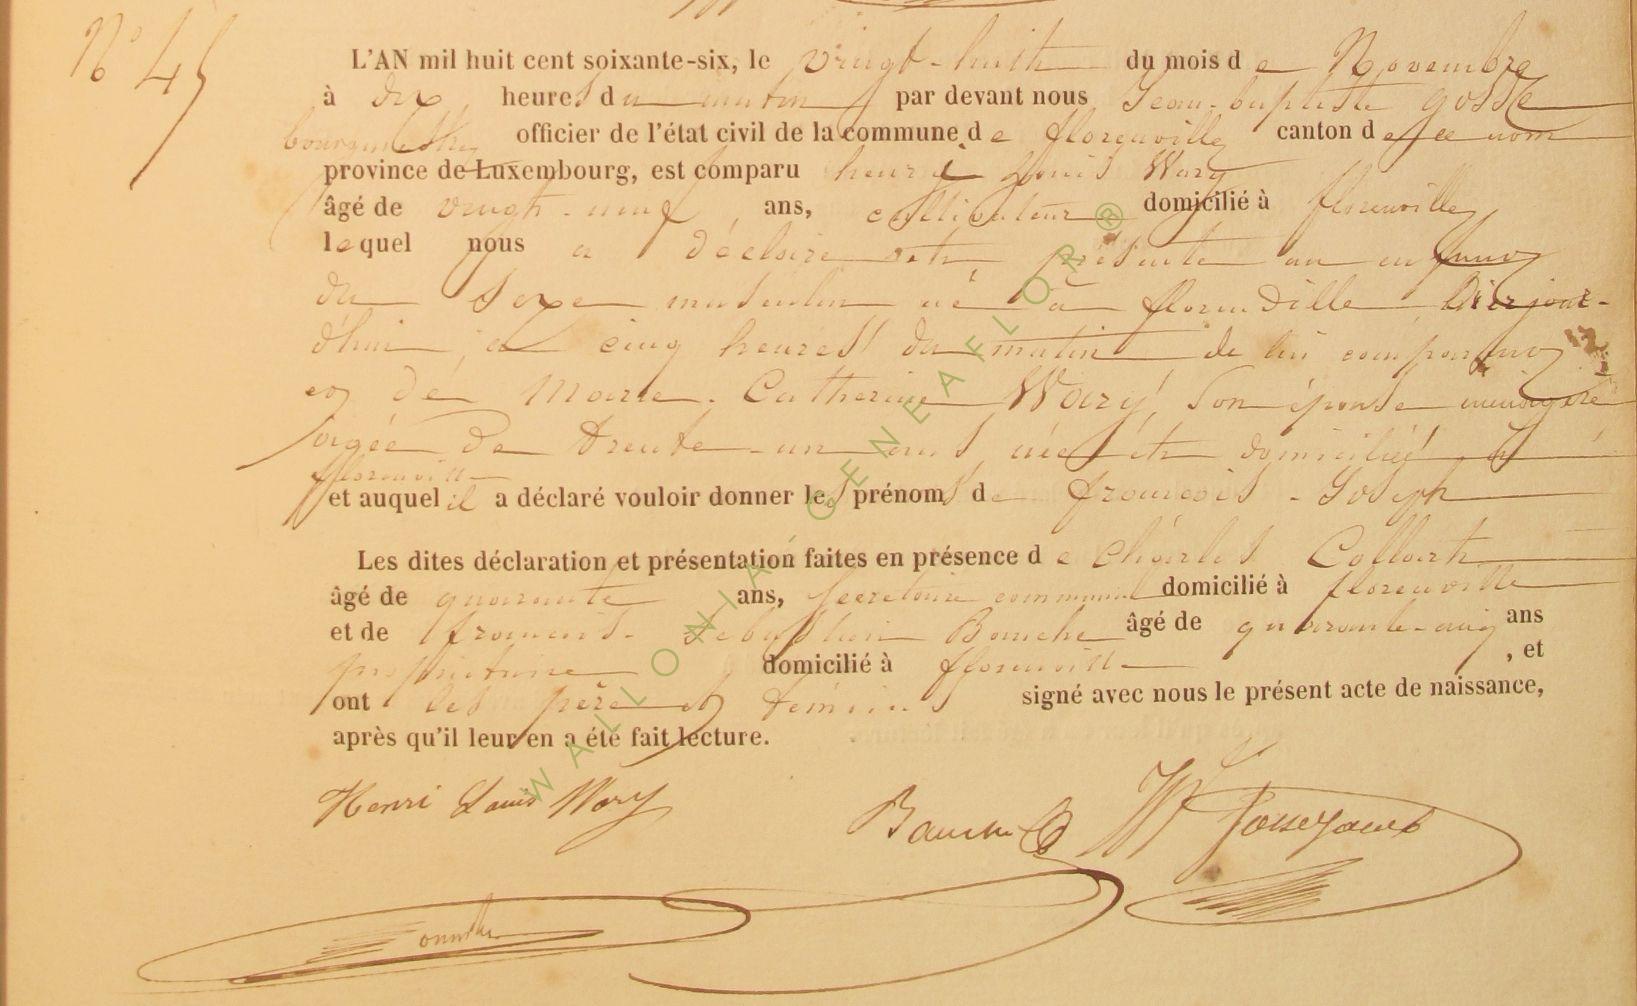 N° 45
L'AN mil huit cent soixante-six, le vingt-huit du mois de Novembre
à dix heures du matin par devant nous Jean-baptiste gosse
bourgmestre officier de l'état civil de la commune de florenville canton de ce nom
province de Luxembourg, est comparu henri Louis Wary
âgé de vingt-neuf ans, cultivateur domicilié à florenville
lequel nous a déclaré et présenté un enfant
du sexe masculin né à florenville
d'hui à cinq heures du matin de lui comparant
et de Marie-Catherine Wary, son épouse ménagère
agée de trente-un ans née et domiciliée à
florenville
et auquel il a déclaré vouloir donner les prénoms de françois-Joseph
Les dites déclaration et présentation faites en présence de Charles Collart
âgé de quarante ans, secretaire communal domicilié à florenville
et de Sebastien Bauche âgé de quarante-cinq ans
propriétaire domicilié à florenville, et
ont les père et témoins signé avec nous le présent acte de naissance,
après qu'il leur en a été fait lecture.
Henri Louis Wary
Bauche
WALLONIA GENEAFLOR ®